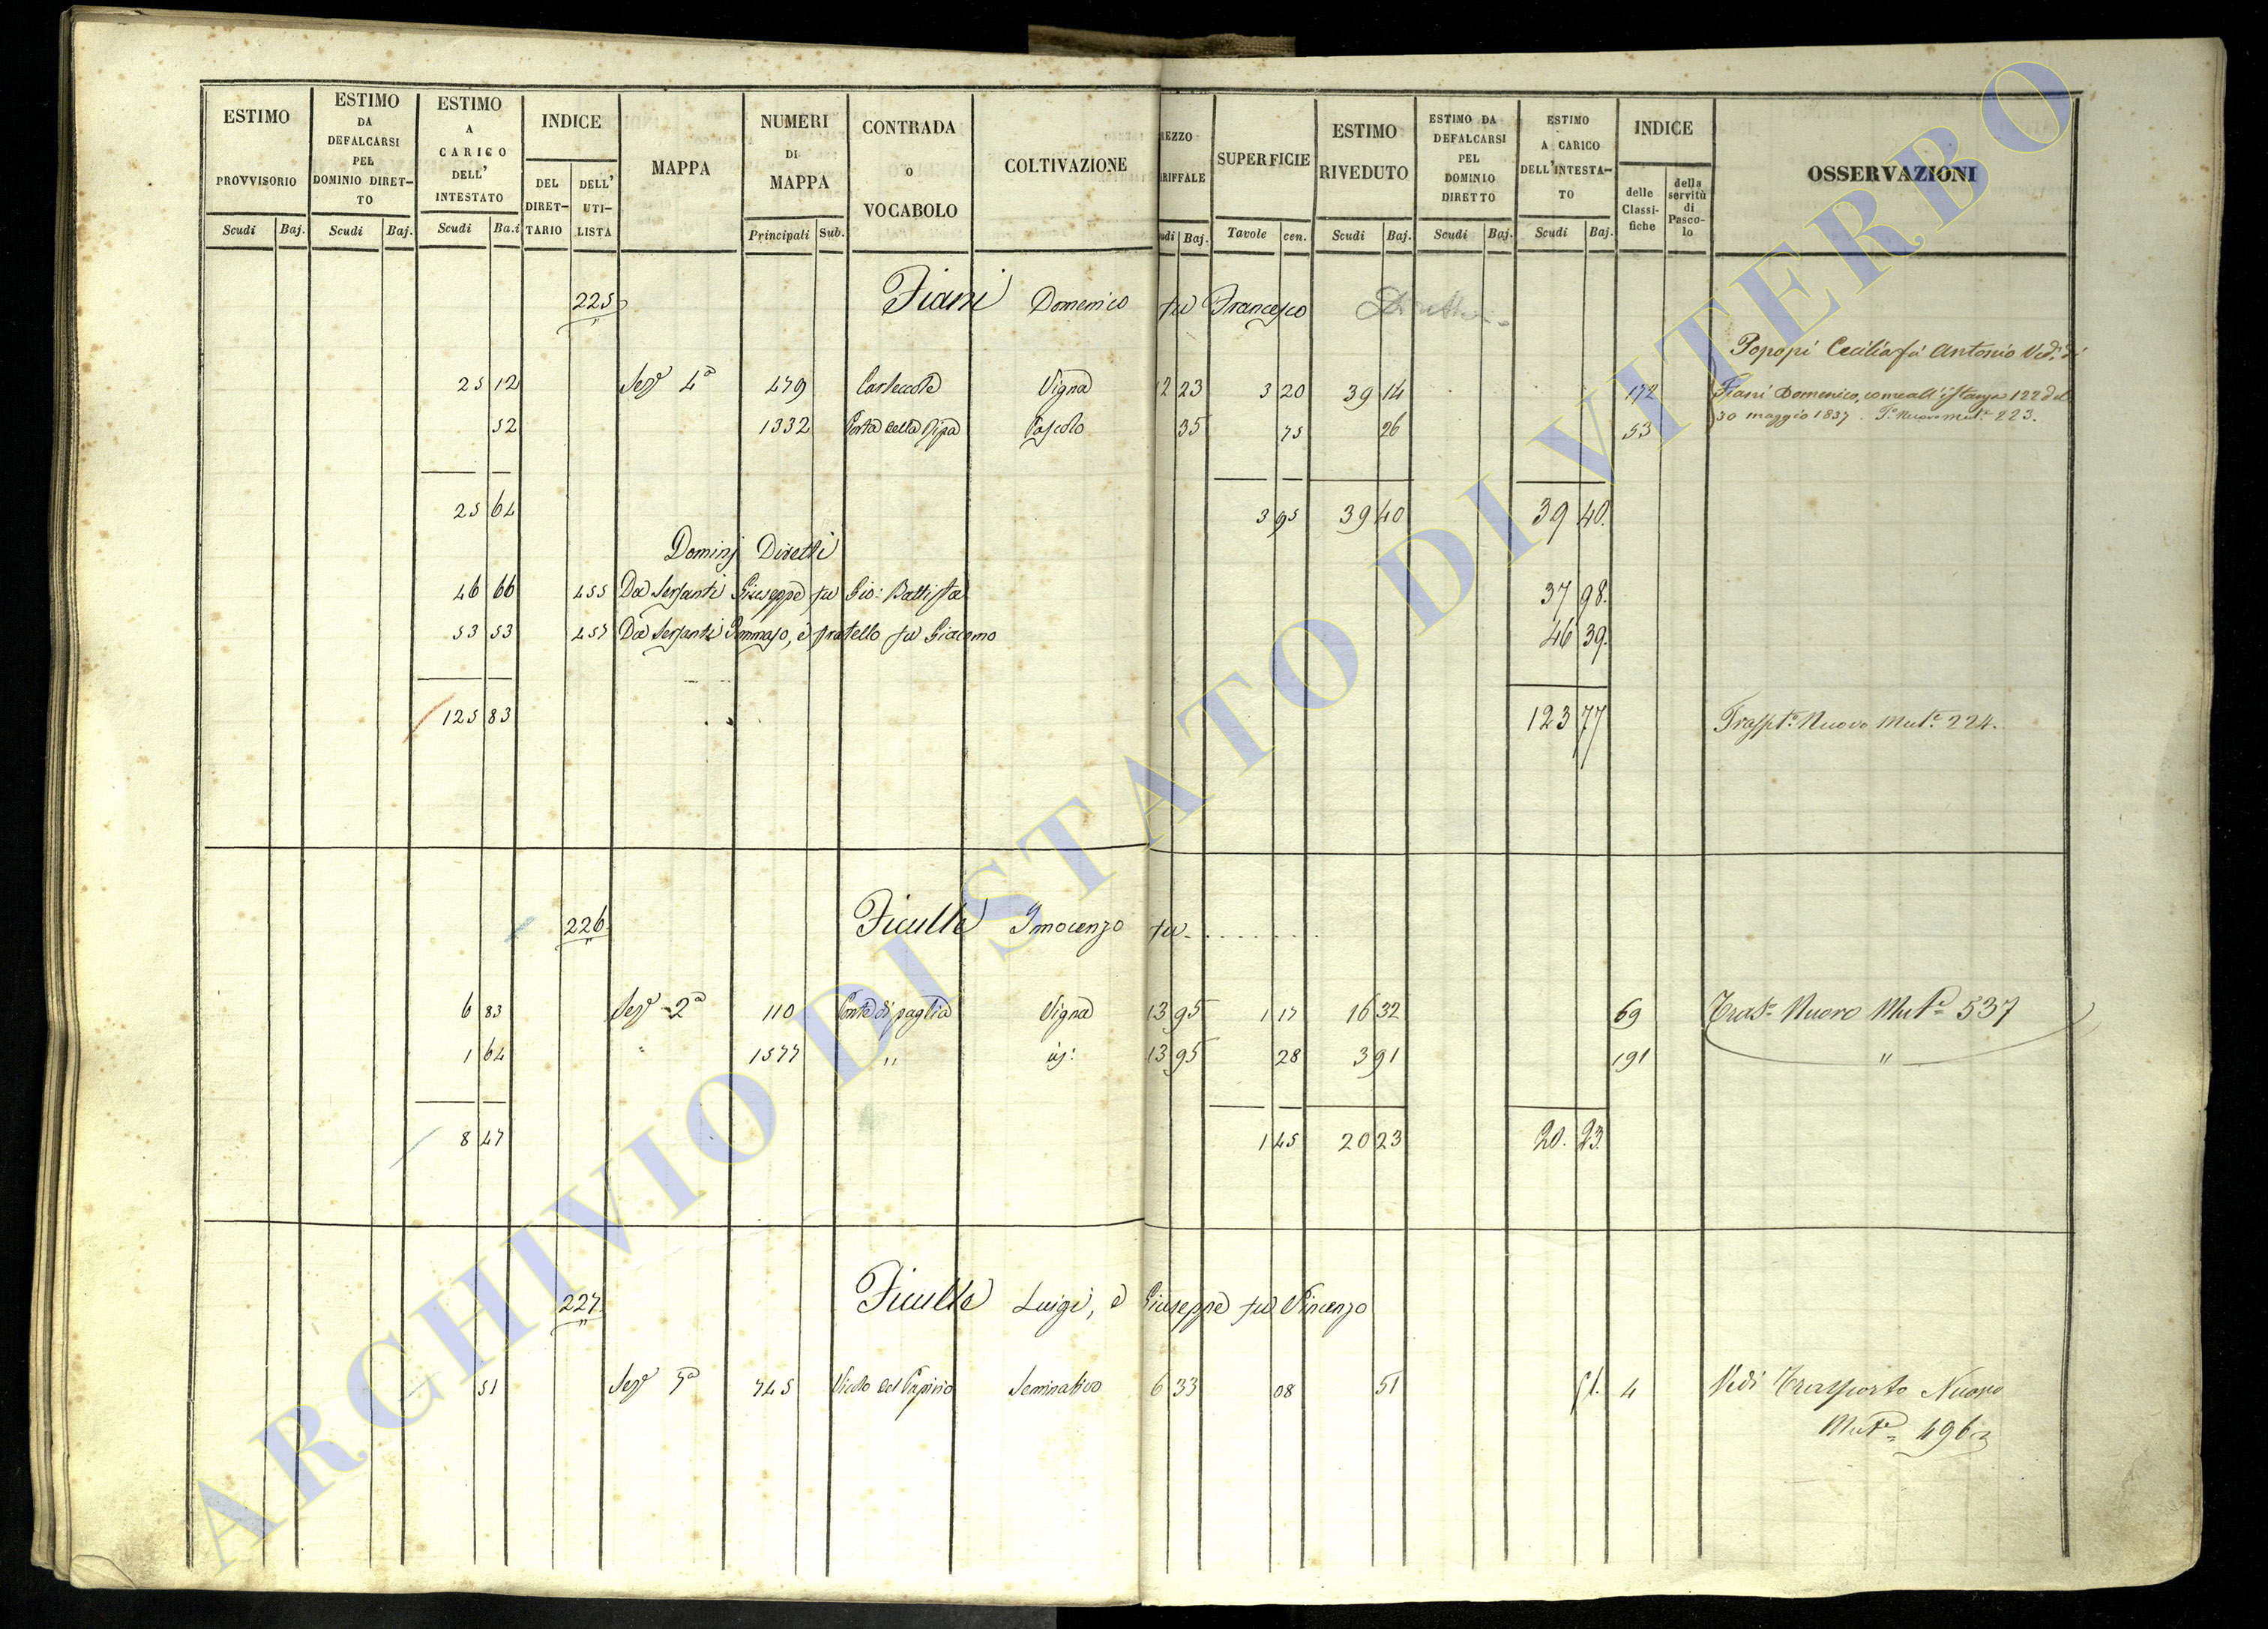 ESTIMO PROVVISORIO Scudi Baj.
ESTIMO DA DEFALCARSI PEL DOMINIO DIRET-TO Scudi Baj.
ESTIMO A CARICO DELL' INTESTATO Scudi Ba.i
INDICE DEL DIRET-TARIO DELL' UTI-LISTA
MAPPA
NUMERI DI MAPPA Principali Sub.
CONTRADA O VOCABOLO
COLTIVAZIONE
REZZO RIFFALE udi Baj.
SUPERFICIE Tavole cen.
ESTIMO RIVEDUTO Scudi Baj.
ESTIMO DA DEFALCARSI PEL DOMINIO DIRETTO Scudi Baj.
ESTIMO A CARICO DELL'INTESTA-TO Scudi Baj.
INDICE delle Classi-fiche della servitù di Pasco-lo
OSSERVAZIONI
225 Fiani Domenico fu Francesco
Popopi Cecilia fu Antonio Ved.ª di
25 12 Sez.e 4ª 479 Vigna 12 23 3 20 39 14 172 Fiani Domenico, come all'istanza 122 del
52 1332 Porta della Ripa Pascolo 35 75 26 53 30 maggio 1837. T.º Nuovo Mut.e 223.
25 64 3 95 39 40 39 40.
Dominj Diretti
46 66 455 Da Sersanti Giuseppe fu Gio: Battista 37 98.
53 53 457 Da Sersanti Tommaso, e fratello fu Giacomo 46 39.
125 83 123 77 Traspt.º Nuovo Mut.e 224.
226 Ficulle Innocenzo fu . . . . . . . .
6 83 Sez.e 2ª 110 Ponte di paglia Vigna 13 95 1 17 16 32 69 Tras.º Nuovo Mut.e 537
1 64 " 1577 " 13 95 28 3 91 191 "
8 47 1 45 20 23 20. 23.
227 Ficulle Luigi, e Giuseppe fu Vincenzo
51 Sez.e 5ª 745 Vicolo del Seminativo 6 33 08 51 51. 4 Vedi Trasporto Nuovo
Mut.e 496
ARCHIVIO DI STATO DI VITERBO